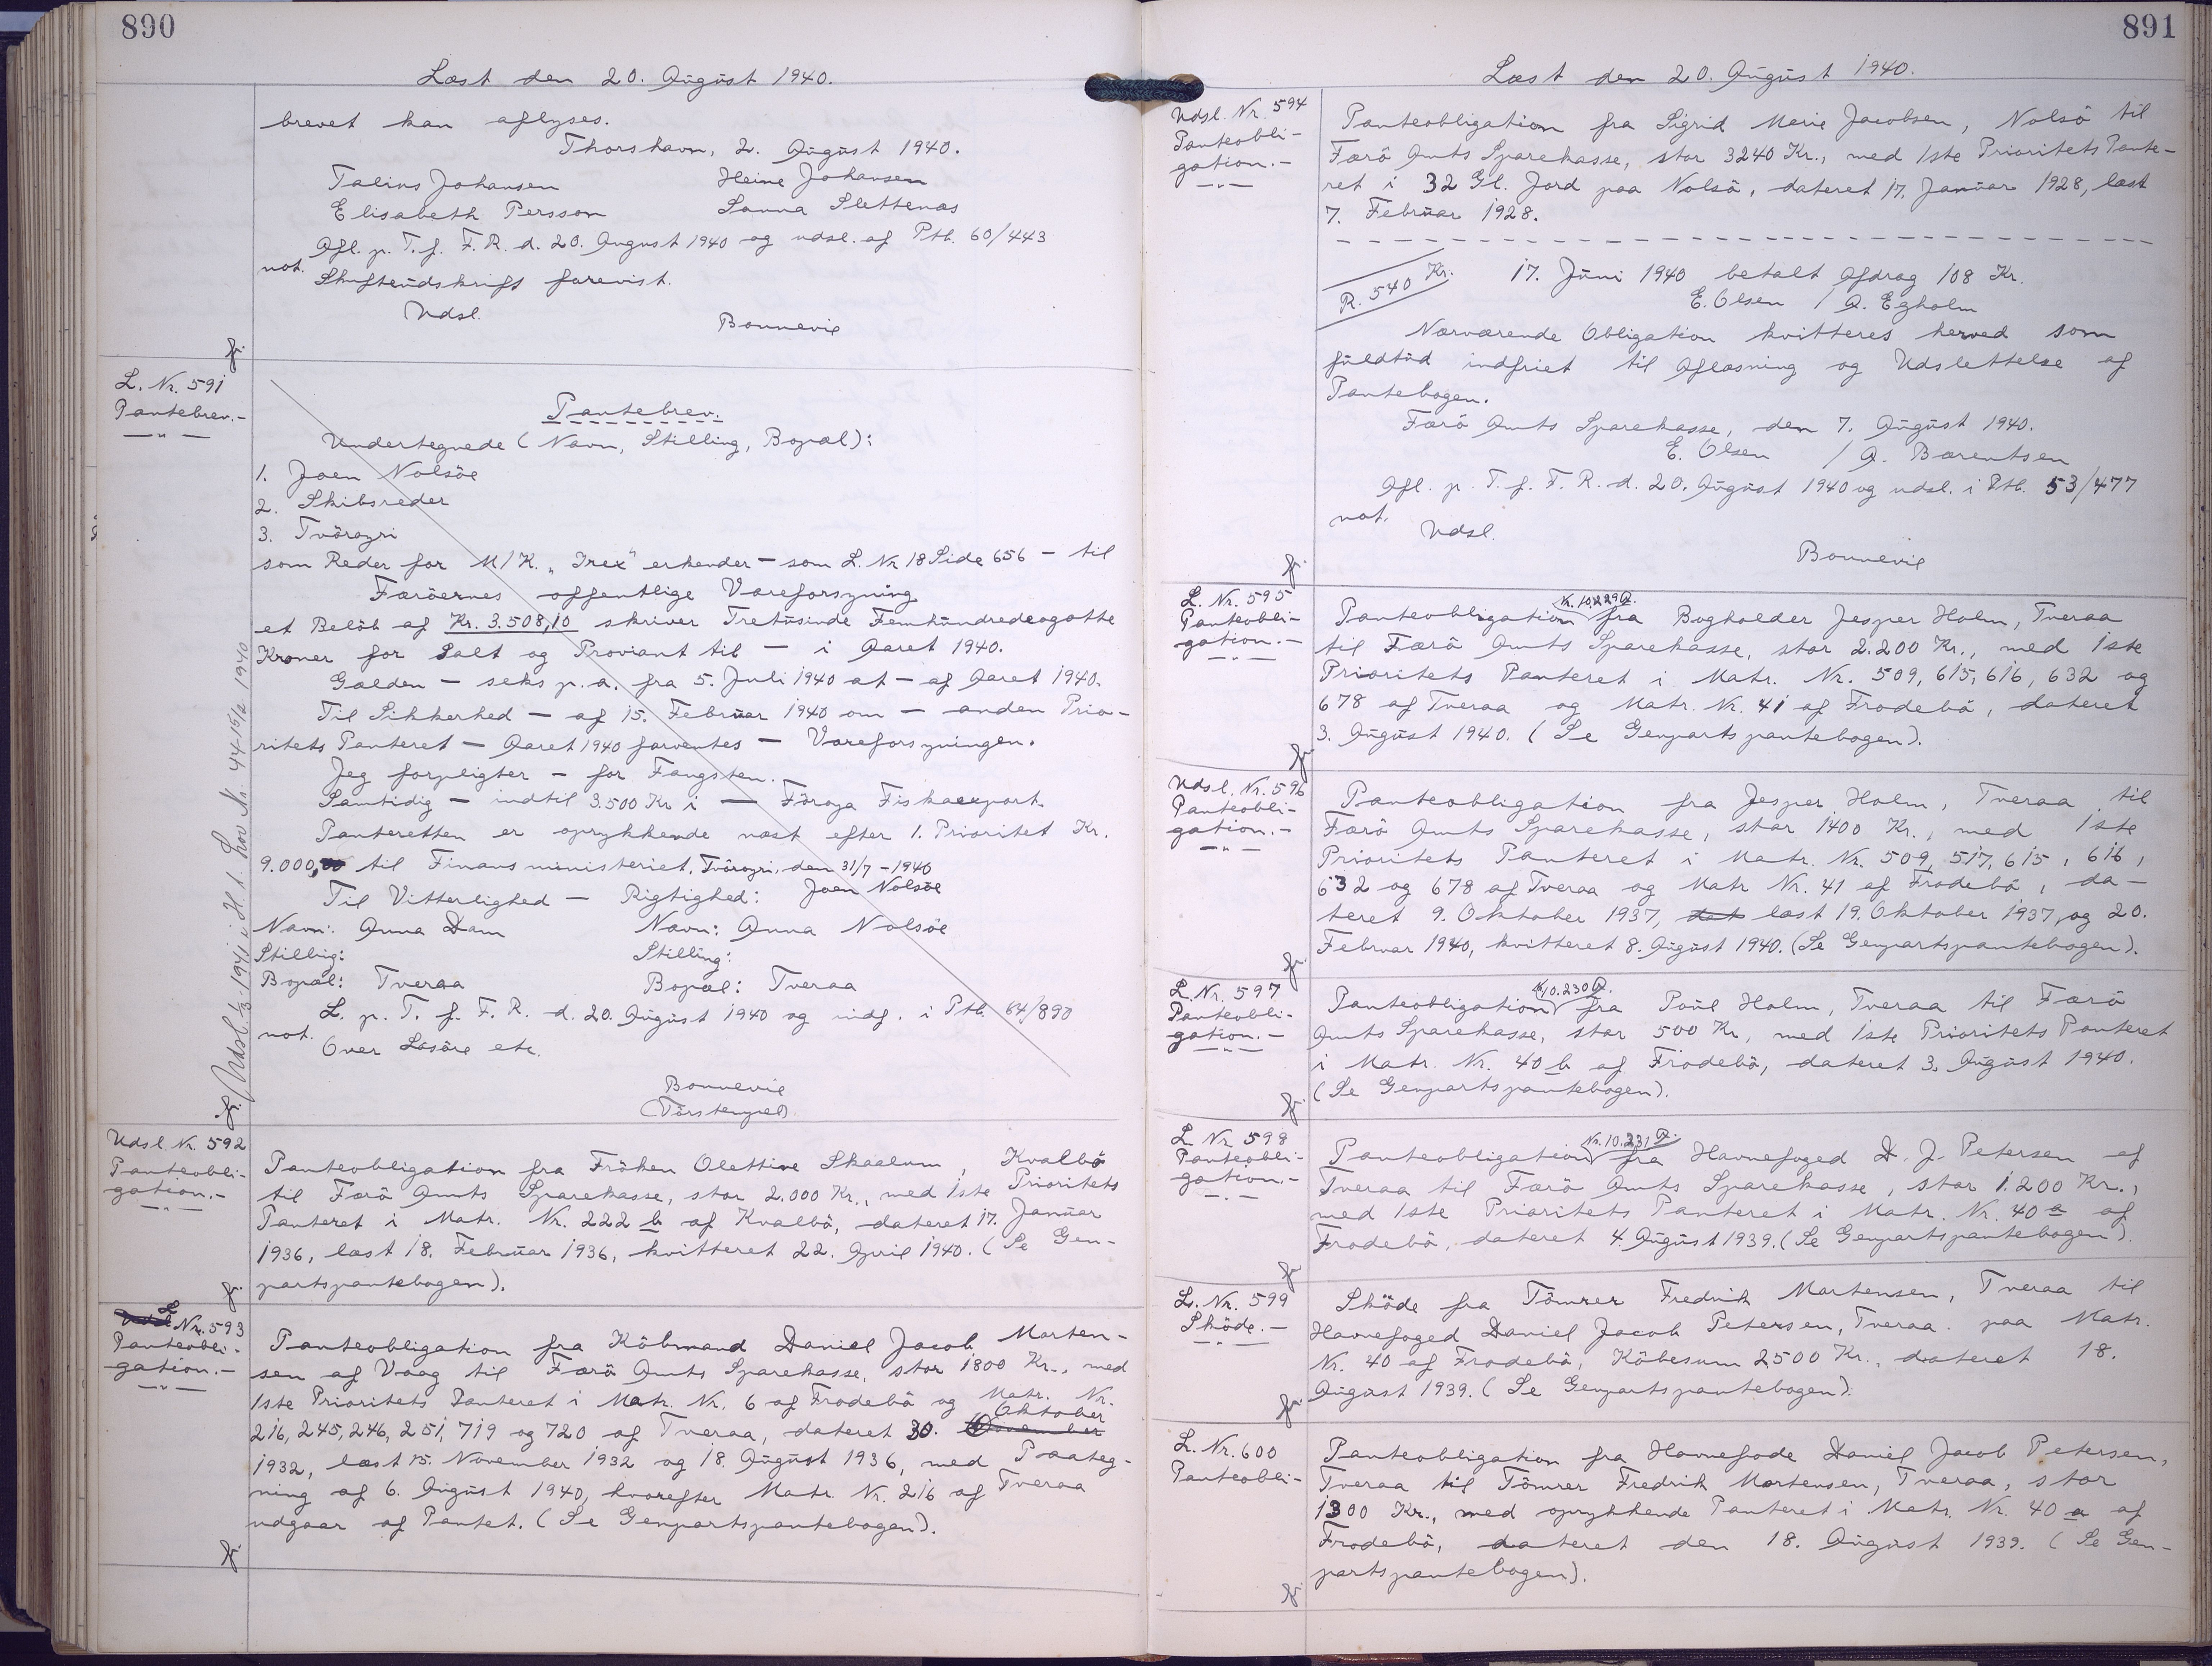 890
Læst den 20. August 1940.
brevet kan aflyses.
Thorshavn, 2. August 1940.
Talius Johansen Heine Johansen
Elisabeth Persson Sanna Slettenæs
Afl. p. T. f. F. R. d. 20. August 1940 og udsl. af Ptb. 60/443
not. Skifteudskrift forevist.
Udsl. Bonnevie
L. Nr. 591
Pantebrev.-
Pantebrev.
Undertegnede (Navn, Stilling, Bopæl):
1. Joen Nolsöe
2. Skibsreder
3. Tvöroyri
som Reder for M/K. „Irex" erkender — som L. Nr 18 Side 656 — til
Færöernes offentlige Vareforsyning
et Belöb af Kr. 3.508,10 skriver Tretusinde Femhundredeogotte
Kroner for Salt og Proviant til — i Aaret 1940.
Gælden — seks p. a. fra 5. Juli 1940 at — af Aaret 1940.
Til Sikkerhed — af 15. Februar 1940 om — anden Prio-
ritets Panteret — Aaret 1940 forventes — Vareforsyningen.
Jeg forpligter — for Fangsten.
Samtidig — indtil 3.500 Kr i — Föroya Fiskaexport.
Panteretten er oprykkende næst efter 1. Prioritet Kr.
9.000,00 til Finansministeriet. Tvöroyri, den 31/7 - 1940
Til Vitterlighed — Rigtighed: Joen Nolsöe
Navn: Anna Dam Navn: Anna Nolsöe
Stilling: Stilling:
Bopæl: Tveraa Bopæl: Tveraa
L. p. T. f. F. R. d. 20. August 1940 og indf. i Ptb. 64/890
not. Over Lösöre etc.
Bonnevie
(Törstempel)
Udsl. 1/3-1941 i H. t. Lov Nr. 44 15/2 1940
Udsl. Nr. 592
Panteobli-
gation.-
Panteobligation fra Fröken Olettine Skaalum, Kvalbö
til Færö Amts Sparekasse, stor 2.000 Kr., med 1ste Prioritets
Panteret i Matr. Nr. 222 b af Kvalbö, dateret 17. Januar
1936, læst 18. Februar 1936, kvitteret 22. April 1940. (Se Gen-
partspantebogen).
Udsl L Nr. 593
Panteobli-
gation.-
Panteobligation fra Köbmand Daniel Jacob Morten-
sen af Vaag til Færö Amts Sparekasse, stor 1800 Kr., med
1ste Prioritets Panteret i Matr. Nr. 6 af Frodebö og Matr. Nr.
Oktober
216, 245, 246, 251, 719 og 720 af Tveraa, dateret 30. November
1932, læst 15. November 1932 og 18. August 1936, med Paateg-
ning af 6. August 1940, hvorefter Matr. Nr. 216 af Tveraa
udgaar af Pantet. (Se Genpartspantebogen).
891
Læst den 20. August 1940.
Udsl. Nr. 594
Panteobli-
gation.-
Panteobligation fra Sigrid Marie Jacobsen, Nolsö til
Færö Amts Sparekasse, stor 3240 Kr., med 1ste Prioritets Pante-
ret i 32 Gl. Jord paa Nolsö, dateret 17. Januar 1928, læst
7. Februar 1928.
R. 540 Kr. 17. Juni 1940 betalt Afdrag 108 Kr.
E. Olsen / A. Egholm
Nærværende Obligation kvitteres herved som
fuldtud indfriet til Aflæsning og Udslettelse af
Pantebogen.
Færö Amts Sparekasse, den 7. August 1940.
E. Olsen / A. Bærentsen
Afl. p. T. f. F. R. d. 20. August 1940 og udsl. i Ptb. 53/477
not.
Udsl. Bonnevie
L. Nr. 595
Panteobli-
gation.-
Nr. 10.229 A.
Panteobligation fra Bogholder Jesper Holm, Tveraa
til Færö Amts Sparekasse, stor 2.200 Kr., med 1ste
Prioritets Panteret i Matr. Nr. 509, 615, 616, 632 og
678 af Tveraa og Matr. Nr. 41 af Frodebö, dateret
3. August 1940. (Se Genpartspantebogen).
Udsl. Nr. 596
Panteobli-
gation.-
Panteobligation fra Jesper Holm, Tveraa til
Færö Amts Sparekasse, stor 1400 Kr., med 1ste
Prioritets Panteret i Matr. Nr. 509, 517, 615, 616,
632 og 678 af Tveraa og Matr Nr. 41 af Frodebö, da-
teret 9. Oktober 1937, dat læst 19. Oktober 1937, og 20.
Februar 1940, kvitteret 8. August 1940. (Se Genpartspantebogen).
L. Nr. 597
Panteobli-
gation.-
Nr. 10.230 A.
Panteobligation fra Poul Holm, Tveraa til Færö
Amts Sparekasse, stor 500 Kr, med 1ste Prioritets Panteret
i Matr. Nr. 40 b af Frodebö, dateret 3. August 1940.
(Se Genpartspantebogen).
L. Nr. 598
Panteobli-
gation.-
Nr. 10.231 A.
Panteobligation fra Havnefoged D. J. Petersen af
Tveraa til Færö Amts Sparekasse, stor 1.200 Kr.,
med 1ste Prioritets Panteret i Matr. Nr. 40 a af
Frodebö, dateret 4. August 1939. (Se Genpartspantebogen).
L. Nr. 599
Sköde.-
Sköde fra Tömrer Fredrik Mortensen, Tveraa til
Havnefoged Daniel Jacob Petersen, Tveraa. paa Matr.
Nr. 40 af Frodebö, Köbesum 2500 Kr., dateret 18.
August 1939. (Se Genpartspantebogen).
L. Nr. 600
Panteobli-
Panteobligation fra Havnefode Daniel Jacob Petersen,
Tveraa til Tömrer Fredrik Mortensen, Tveraa, stor
1300 Kr., med oprykkende Panteret i Matr. Nr. 40 a af
Frodebö, dateret den 18. August 1939. (Se Gen-
partspantebogen).